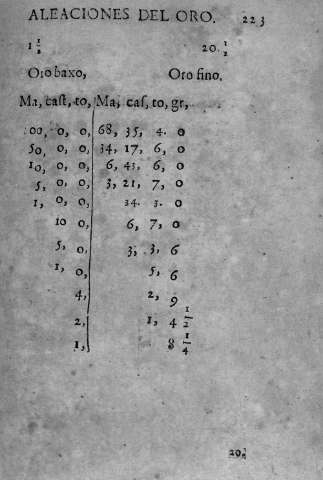 ALEACIONES DEL ORO. 223
1 1/2 20. 1/2
Oro baxo, Oro fino.
Ma, cast, to, Ma, cas, to, gr,
00, 0, 0, 68, 35, 4. 0
50, 0, 0, 34, 17, 6, 0
10, 0, 0, 6, 41, 6, 0
5, 0, 0, 3, 21, 7, 0
1, 0, 0, 34. 3. 0
10 0 6, 7, 0
5, 0, 3, 3, 6
1, 0, 5, 6
4, 2, 9
2, 1, 4 1/2
1, 8 1/4